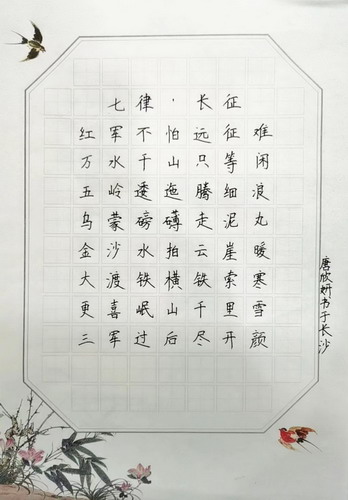 七律·长征
红军不怕远征难
万水千山只等闲
五岭逶迤腾细浪
乌蒙磅礴走泥丸
金沙水拍云崖暖
大渡铁横铁索寒
更喜岷山千里雪
三军过后尽开颜
唐欣妍书于长沙